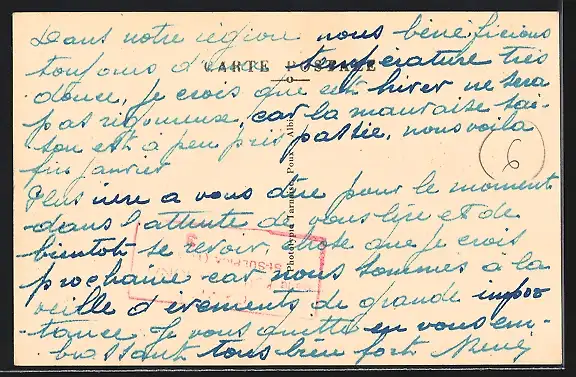 Dans notre région nous bénéficions
toujours d'une température très
CARTE POSTALE
douce, je crois que cet hiver ne sera
pas rigoureux, car la mauvaise sai-
son est à peu près passée, nous voilà
fin janvier
Plus rien a vous dire pour le moment
dans l'attente de vous lire et de
bientôt se revoir, chose que je crois
prochaine car nous sommes à la
veille d'évènements de grande impor
tance. Je vous quitte en vous em-
brassant tous bien fort René
Phototypie Tarnaise Poux, Albi
6